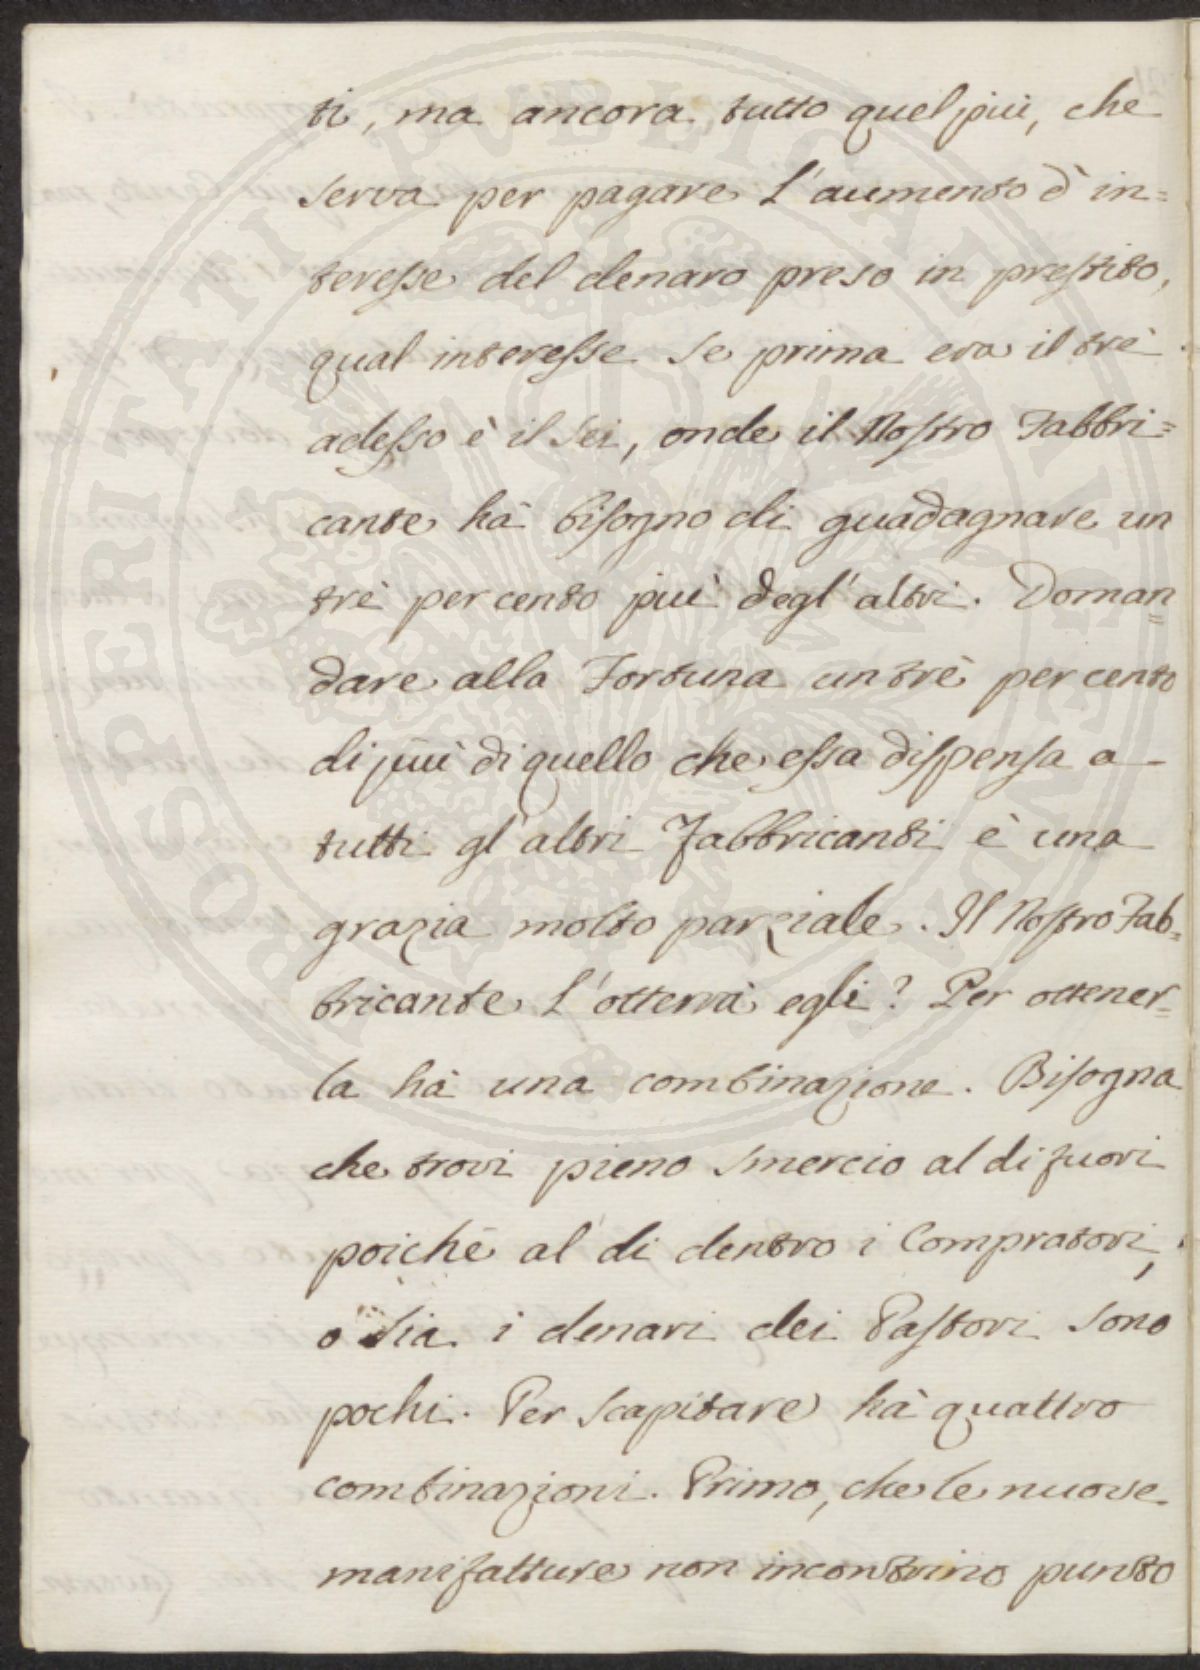 ti, ma ancora tutto quel più, che
serva per pagare l'aumento d'in=
teresse del denaro preso in prestito,
qual interesse se prima era il trè
adesso è il sei, onde il Nostro Fabbri=
cante hà bisogno di guadagnare un
trè per cento più degl'altri. Doman=
dare alla Fortuna un trè per cento
di più di quello che essa dispensa a
tutti gl'altri Fabbricanti è una
grazia molto parziale. Il Nostro Fab=
bricante l'otterrà egli? Per ottener=
la hà una combinazione. Bisogna
che trovi pieno smercio al di fuori
poichè al di dentro i Compratori,
o sia i denari dei Pastori sono
pochi. Per scapitare hà quattro
combinazioni. Primo, che le nuove
manifatture non incontrino punto
PROSPERITATI PVBLICAE